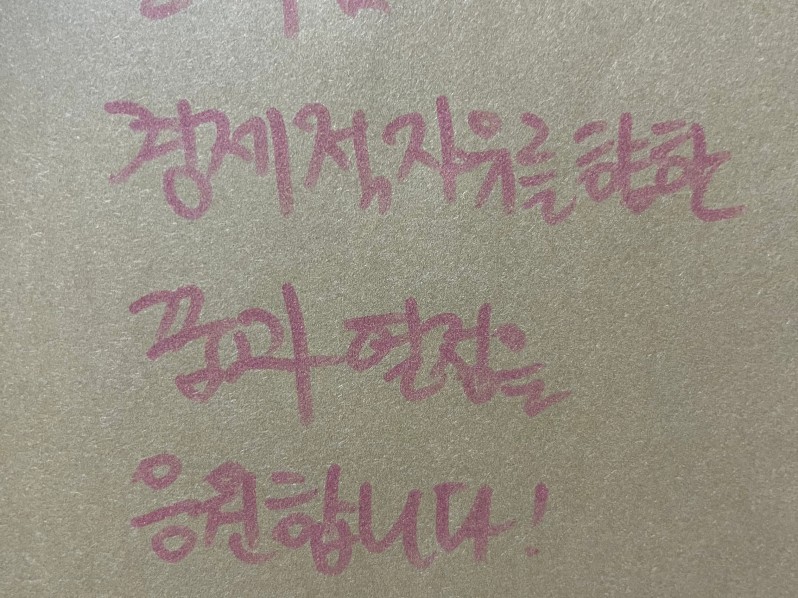 경제적 자유를 향한
꿈과 열정을
응원합니다!